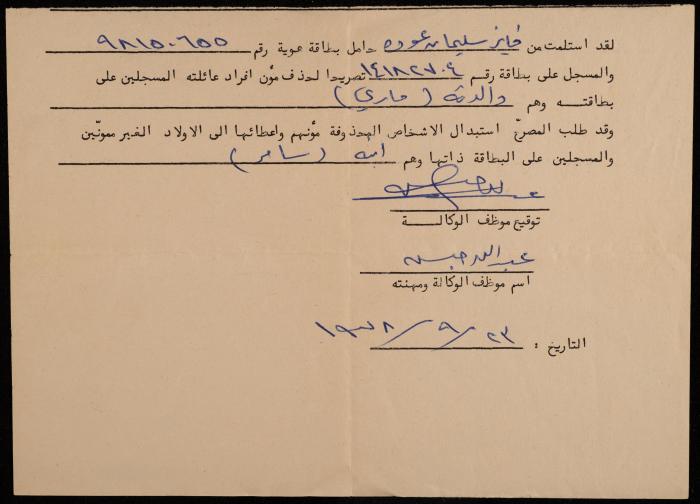 لقد استلمت من فايز سليمان عوده حامل بطاقة هوية رقم ٩٨١٥٠٦٥٥
والمسجل على بطاقة رقم ١٤١٨٢٧٠٤ تصريحا لحذف مؤن افراد عائلته المسجلين على
بطاقتــه وهم والدته (ماري)
وقد طلب المصرح استبدال الاشخاص المحذوفة مؤنهم واعطائها الى الاولاد الغير ممونين
والمسجلين على البطاقة ذاتها وهم ابنه (سامر)
توقيع موظف الوكالــة
عبد الله
اسم موظف الوكالة ومهنته
التاريخ : ٢٣/٩/١٩٧٨